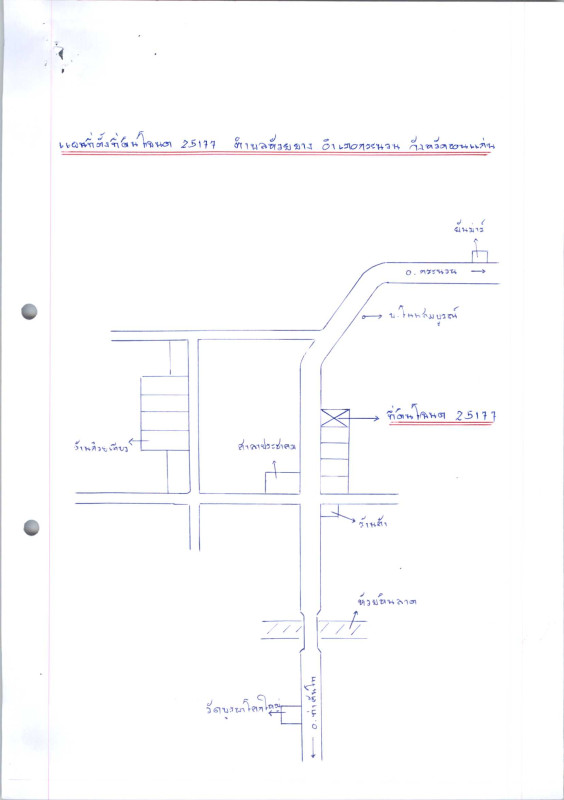 แผนที่ตั้งที่ดินโฉนด 25177 ตำบลห้วยยาง อำเภอกระนวน จังหวัดขอนแก่น
อ. กระนวน
บ. โนนสมบูรณ์
ที่ดินโฉนด 25177
ศาลาประชาคม
ร้านก๋วยเตี๋ยว
ร้านค้า
ห้วยหินลาด
วัดบูรพาโคกใหญ่
อ. ท่าคันโท